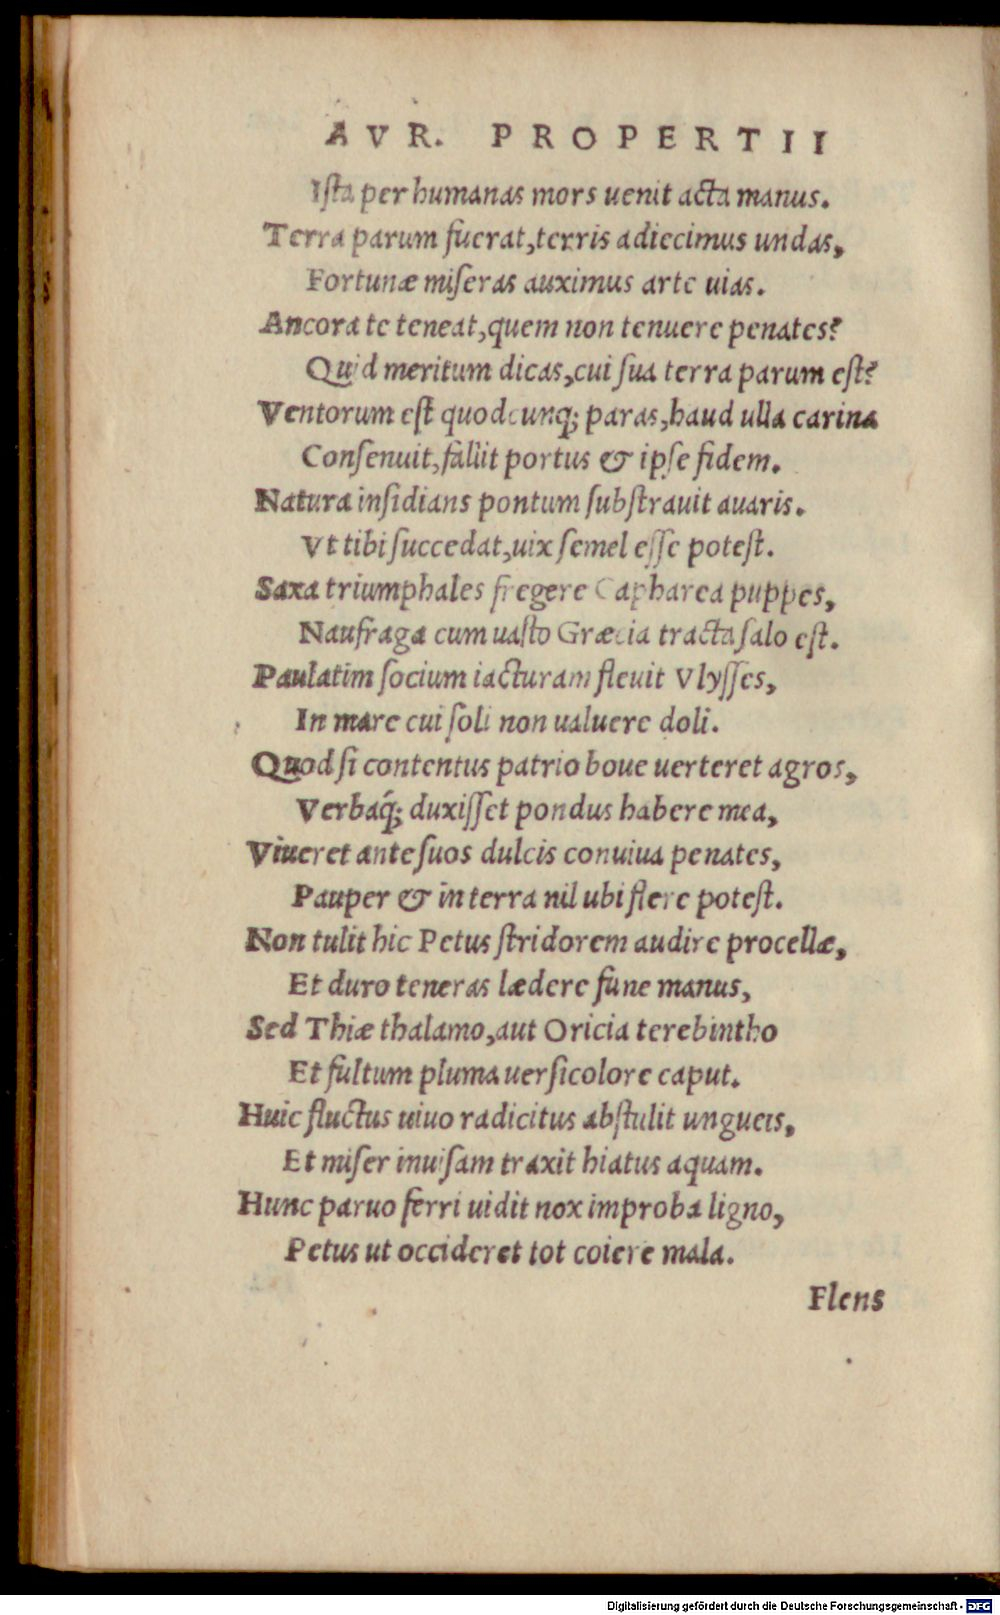 AVR. PROPERTII
Ista per humanas mors uenit acta manus.
Terra parum fuerat, terris adiecimus undas,
Fortunæ miseras auximus arte uias.
Ancora te teneat, quem non tenuere penates?
Quid meritum dicas, cui sua terra parum est?
Ventorum est quodcunq; paras, haud ulla carina
Consenuit, fallit portus & ipse fidem.
Natura insidians pontum substrauit auaris.
Vt tibi succedat, uix semel esse potest.
Saxa triumphales fregere Capharea puppes,
Naufraga cum uasto Græcia tracta salo est.
Paulatim socium iacturam fleuit Vlysses,
In mare cui soli non ualuere doli.
Quod si contentus patrio boue uerteret agros,
Verbaq́; duxisset pondus habere mea,
Viueret ante suos dulcis conuiua penates,
Pauper & in terra nil ubi flere potest.
Non tulit hic Petus stridorem audire procellæ,
Et duro teneras lædere fune manus,
Sed Thiæ thalamo, aut Oricia terebintho
Et fultum pluma uersicolore caput.
Huic fluctus uiuo radicitus abstulit ungueis,
Et miser inuisam traxit hiatus aquam.
Hunc paruo ferri uidit nox improba ligno,
Petus ut occideret tot coiere mala.
Flens
Digitalisierung gefördert durch die Deutsche Forschungsgemeinschaft - DFG